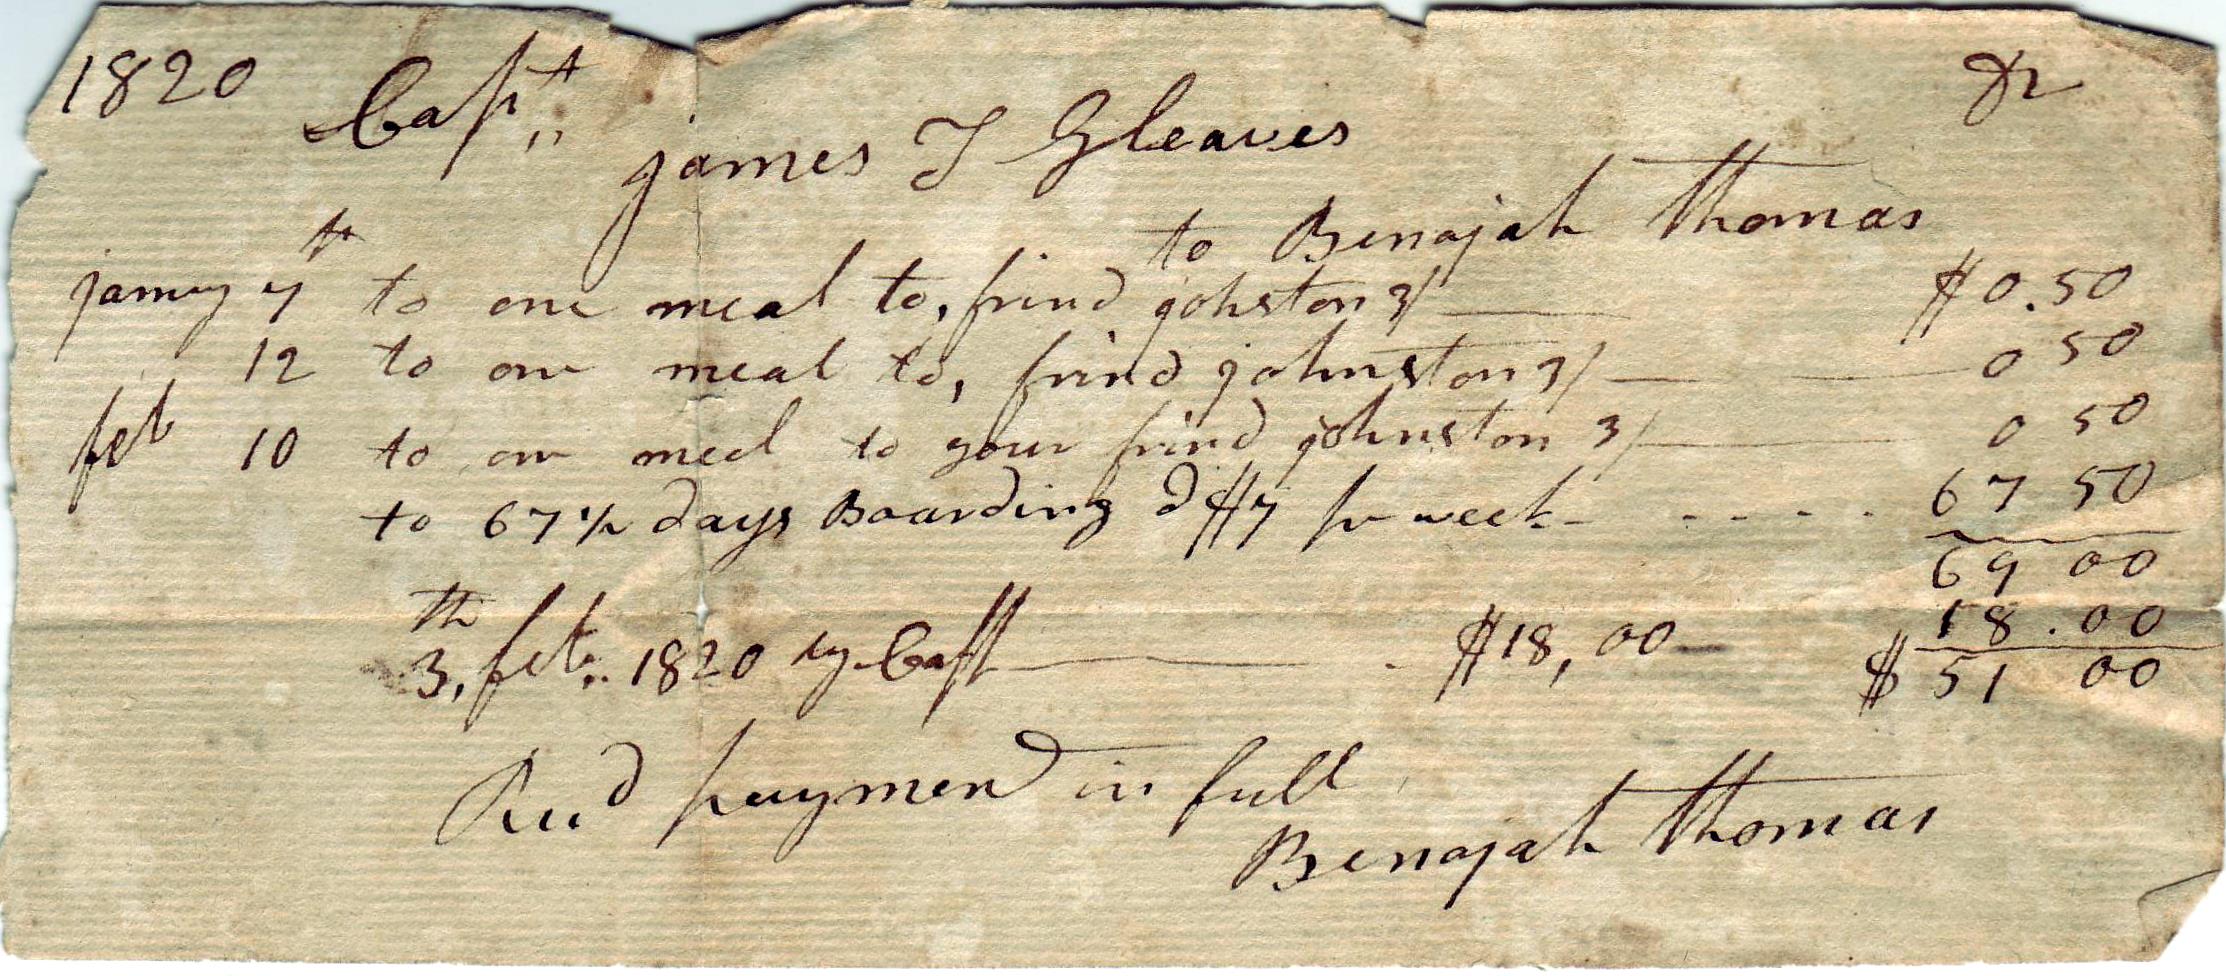 1820 Capt,, Dr
james T Gleaves
to Benajah Thomas
janury 7th to one meal to, frind johston 3/ $0.50
12 to one meal to, frind johnston 3/ 0 50
feb 10 to one meal to your frind johnston 3/ 0 50
to 67 1/2 days Boarding @ $7 pr week 67 50
69 00
18.00
3th, feb,, 1820 by Cash $18,00 $ 51 00
Recd payment in full
Benajah Thomas